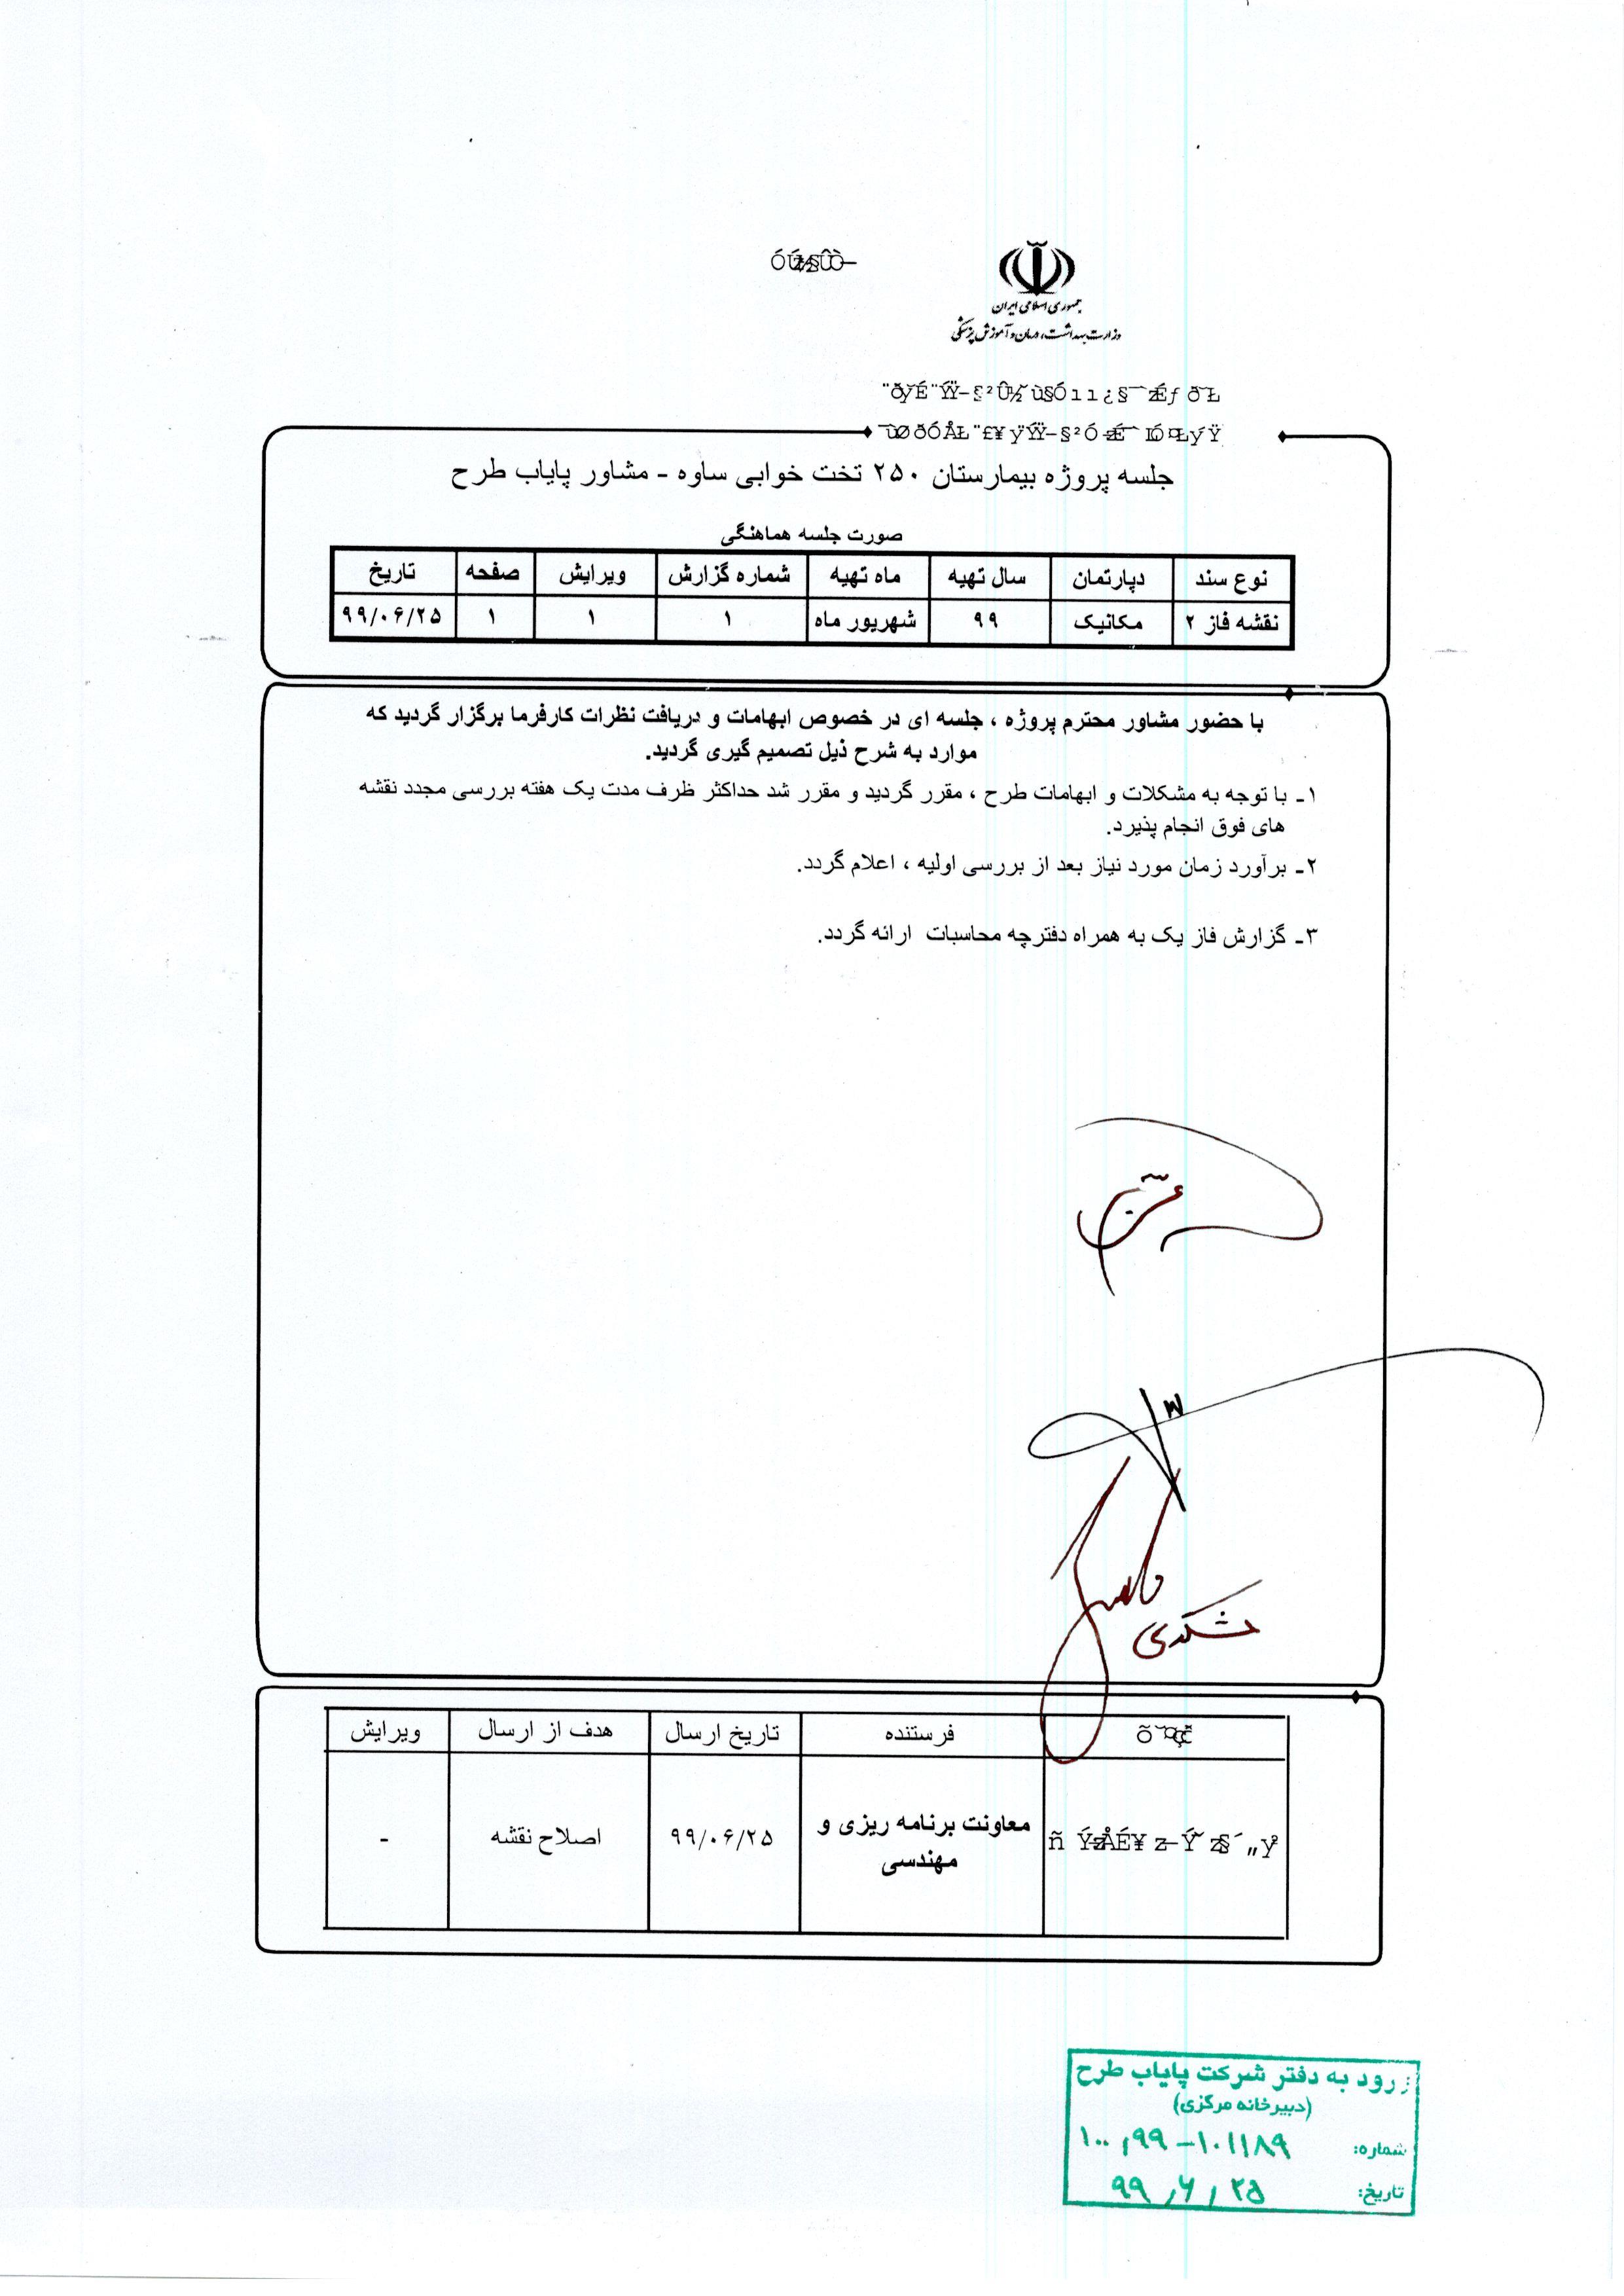 جمهوری اسلامی ایران
وزارت بهداشت، درمان و آموزش پزشکی
جلسه پروژه بیمارستان ۲۵۰ تخت خوابی ساوه - مشاور پایاب طرح
صورت جلسه هماهنگی
نوع سند دپارتمان سال تهیه ماه تهیه شماره گزارش ویرایش صفحه تاریخ
نقشه فاز ۲ مکانیک ۹۹ شهریور ماه ۱ ۱ ۱ ۹۹/۰۶/۲۵
با حضور مشاور محترم پروژه ، جلسه ای در خصوص ابهامات و دریافت نظرات کارفرما برگزار گردید که
موارد به شرح ذیل تصمیم گیری گردید.
۱- با توجه به مشکلات و ابهامات طرح ، مقرر گردید و مقرر شد حداکثر ظرف مدت یک هفته بررسی مجدد نقشه
های فوق انجام پذیرد.
۲- برآورد زمان مورد نیاز بعد از بررسی اولیه ، اعلام گردد.
۳- گزارش فاز یک به همراه دفترچه محاسبات ارائه گردد.
فرستنده تاریخ ارسال هدف از ارسال ویرایش
معاونت برنامه ریزی و
مهندسی
۹۹/۰۶/۲۵ اصلاح نقشه -
رود به دفتر شرکت پایاب طرح
(دبیرخانه مرکزی)
شماره: ۱۰۰,۹۹-۱۰۱۱۸۹
تاریخ: ۹۹,۶,۲۵